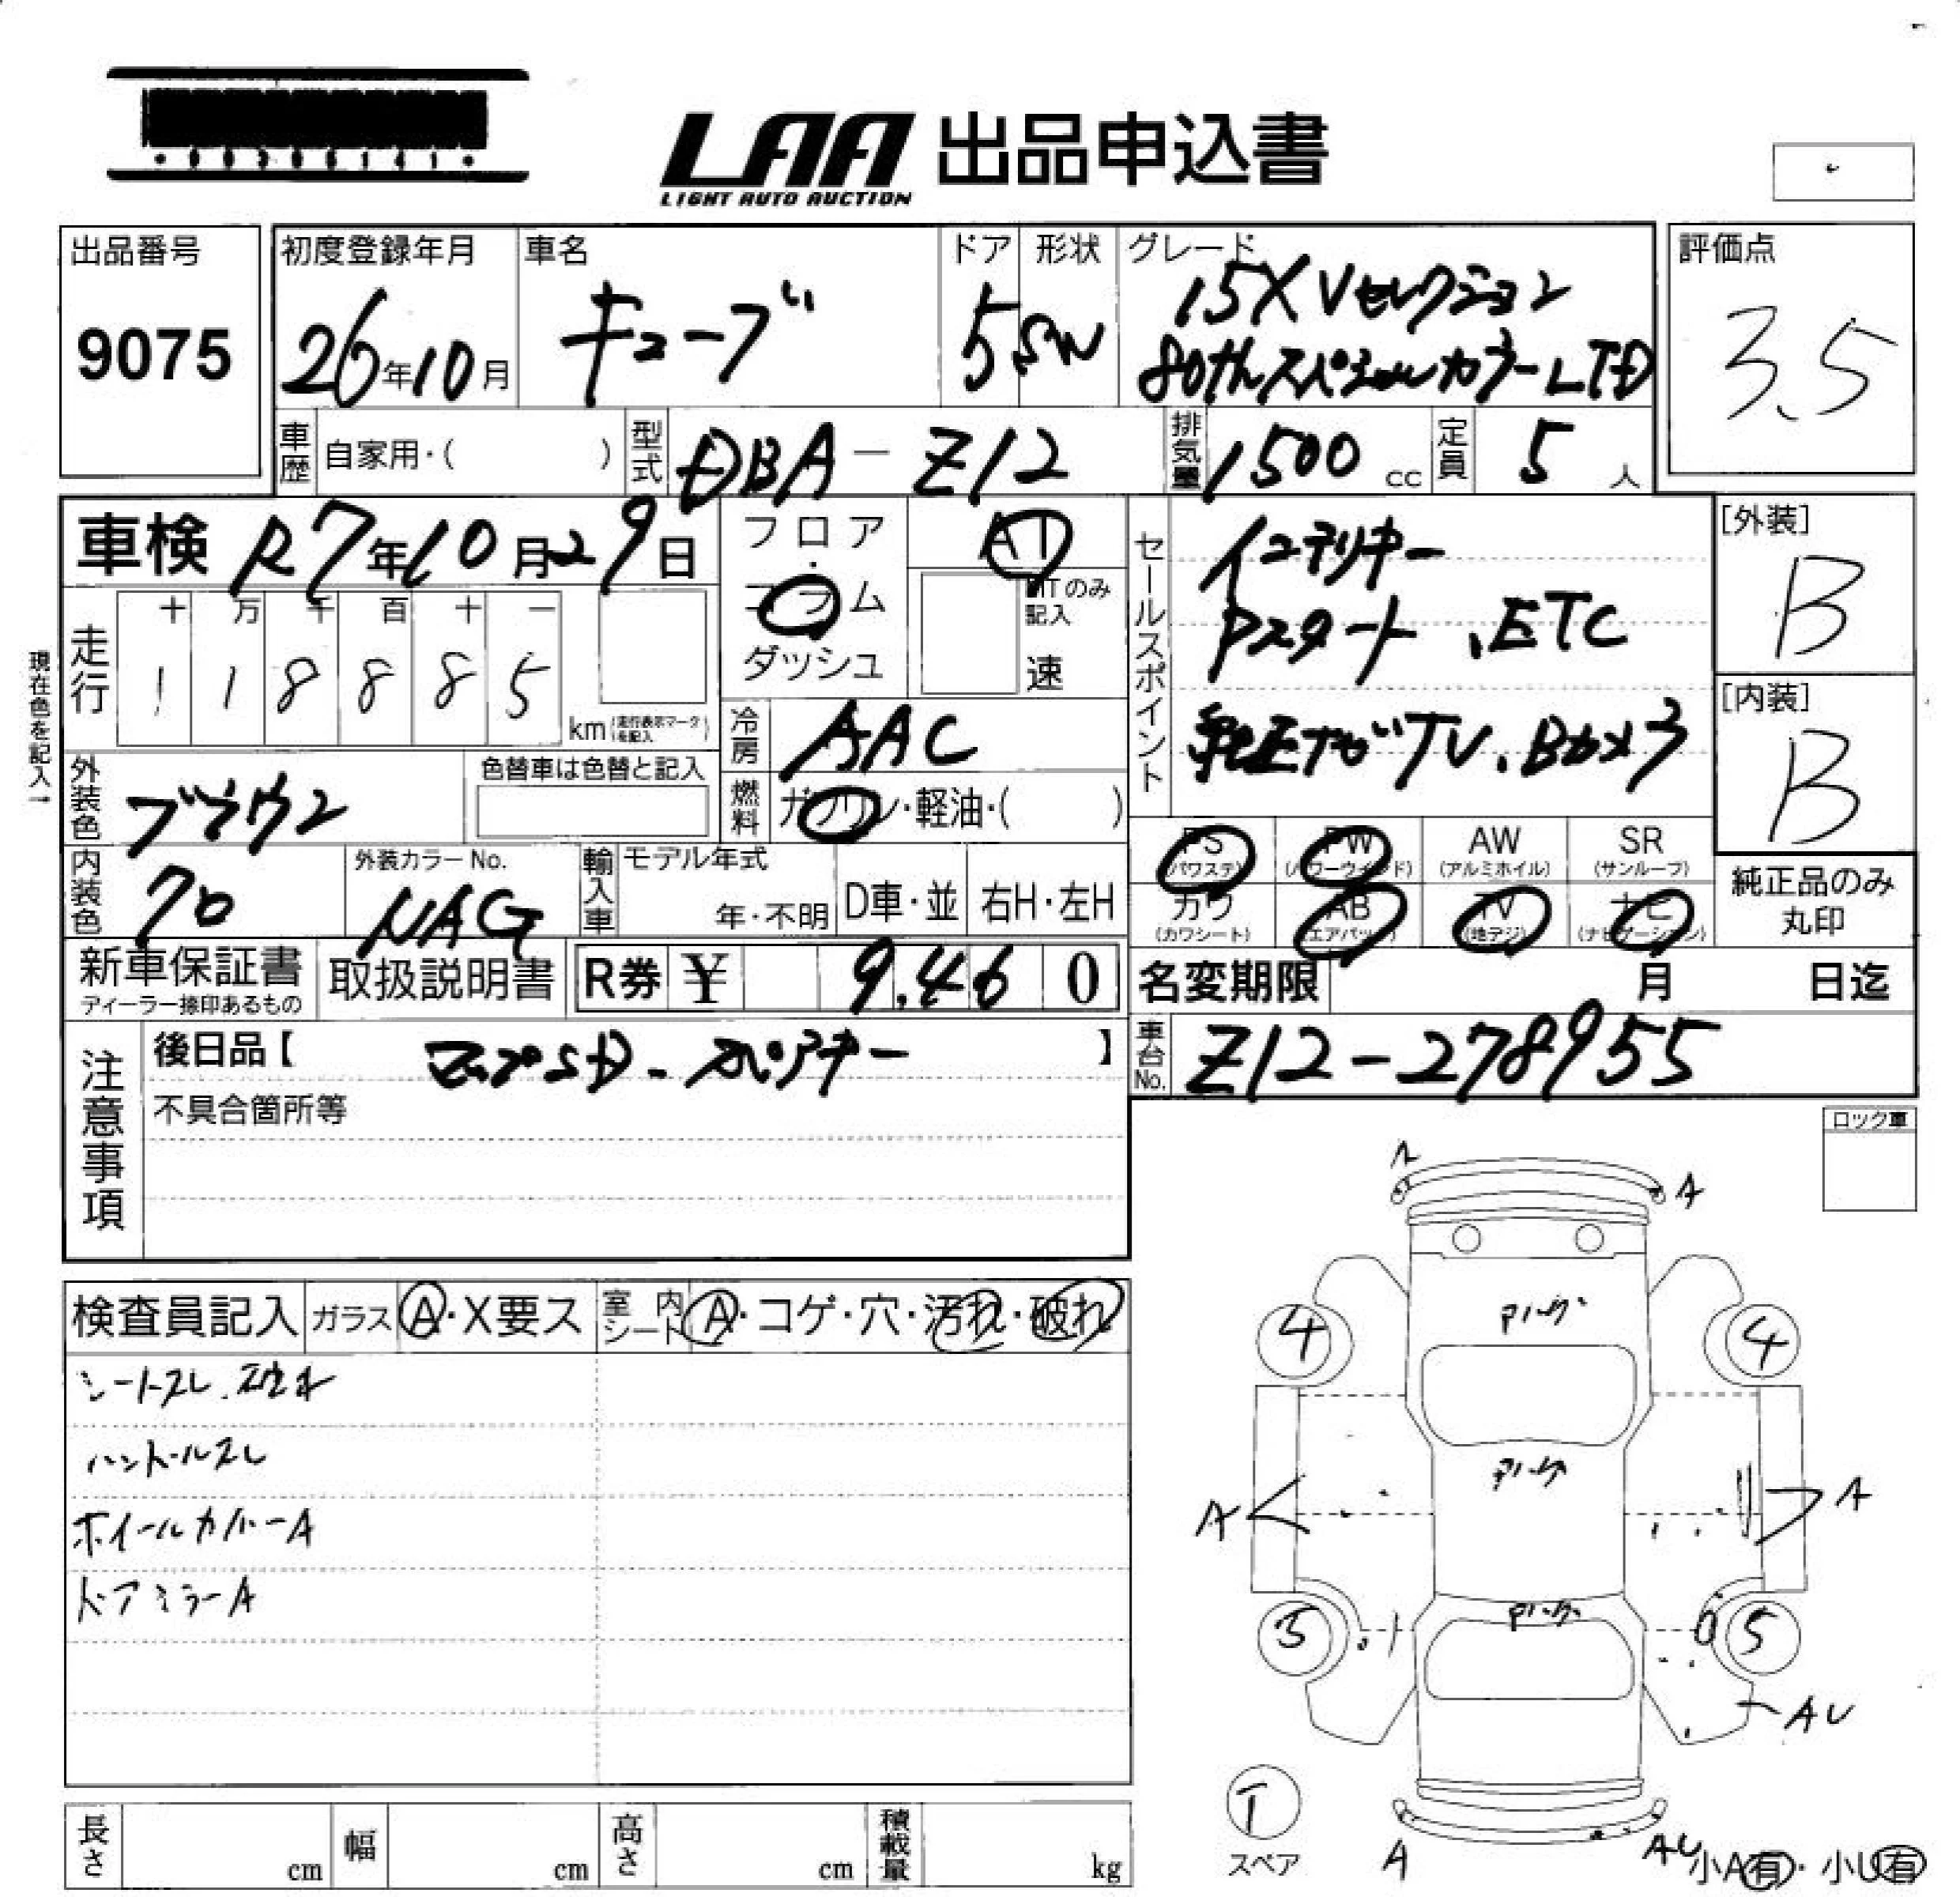 LAA 出品申込書
LIGHT AUTO AUCTION
出品番号
9075
初度登録年月
26年10月
車名
キューブ
ドア
5
形状
SW
グレード
15X Vセレクション
80thスペシャルカラーLTD
評価点
3.5
車歴 自家用・( )
型式 DBA-Z12
排気量 1500 cc
定員 5 人
車検 R7年10月29日
フロア
・
コラム
ダッシュ
AT
MTのみ
記入
速
セールスポイント
インテリキー
Pスタート、ETC
純正ナビTV、Bカメラ
[外装]
B
[内装]
B
現在色を記入→
走行
十 万 千 百 十 一
1 1 8 8 8 5
km(走行表示マークを記入)
冷房 AAC
燃料 ガソリン・軽油・( )
外装色 ブラウン
色替車は色替と記入
内装色
外装カラーNo.
NAG
輸入車
モデル年式
年・不明
D車・並
右H・左H
PS
(パワステ)
PW
(パワーウインド)
AW
(アルミホイル)
SR
(サンルーフ)
カワ
(カワシート)
AB
(エアバック)
TV
(地デジ)
ナビ
(ナビゲーション)
純正品のみ
丸印
新車保証書
ディーラー捺印あるもの
取扱説明書
R券 ¥ 9,460
名変期限 月 日迄
車台No. Z12-278955
注意事項
後日品【 マップSD、スペアキー 】
不具合箇所等
ロック車
検査員記入
ガラス A・X要ス
室内シート A・コゲ・穴・汚れ・破れ
シートスレ、破れ
ハンドルスレ
ホイールカバーA
ドアミラーA
A
A
4
4
アハゲ
アハゲ
A
A
アハゲ
5
5
AU
T
スペア
A
AU
小A有・小U有
長さ cm
幅 cm
高さ cm
積載量 kg